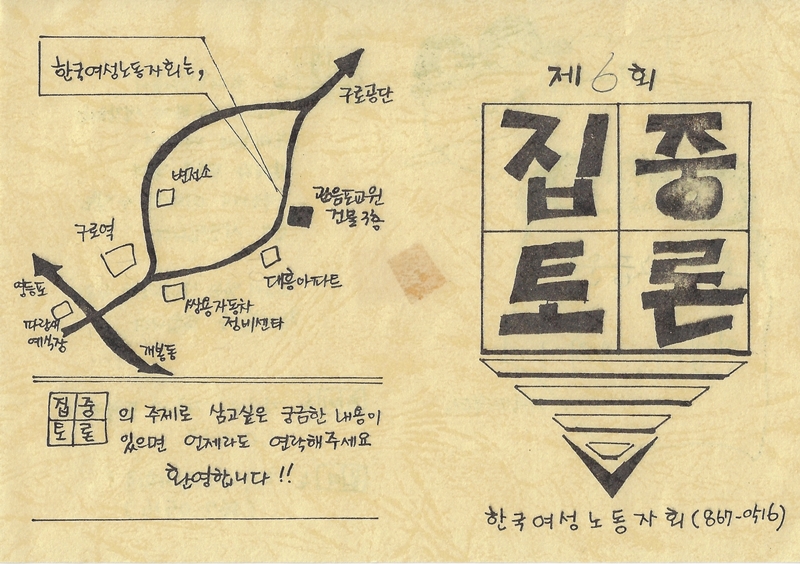 한국여성노동자회는,
구로공단
변전소
관음포교원
건물 3층
구로역
대흥아파트
영등포
쌍용자동차
정비센타
파랑새
예식장
개봉동
집중
토론
의 주제로 삼고싶은 궁금한 내용이
있으면 언제라도 연락해주세요
환영합니다!!
제6회
집중
토론
한국여성노동자회(867-0516)